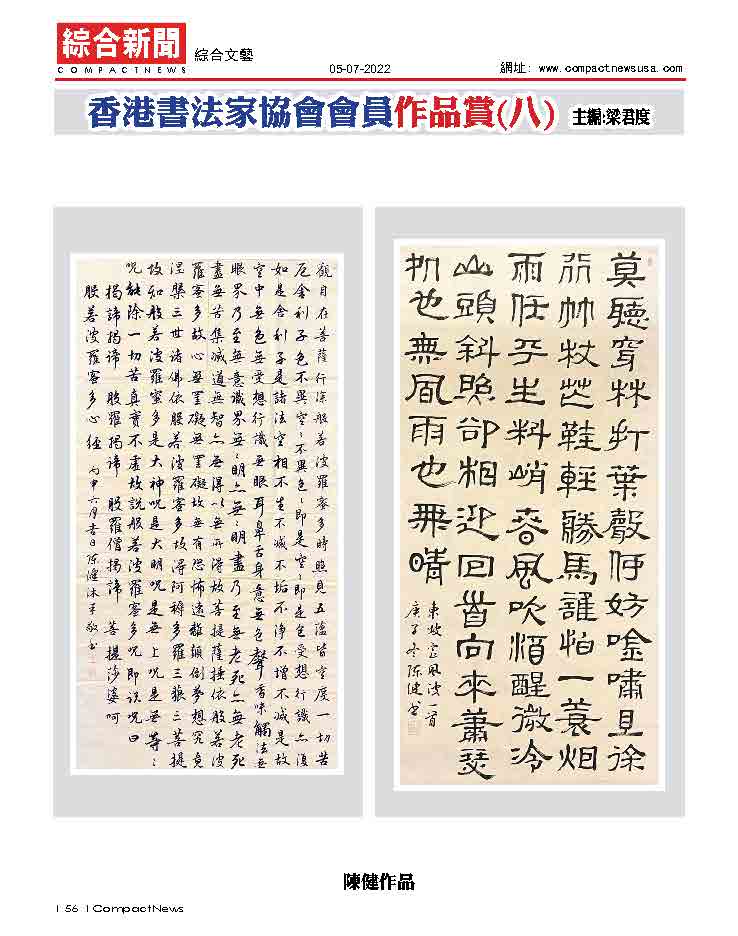 綜合新聞
COMPACTNEWS
綜合文藝
05-07-2022
網址: www.compactnewsusa.com
香港書法家協會會員作品賞(八)
主編:梁君度
觀自在菩薩行深般若波羅蜜多時照見五蘊皆空度一切苦
厄舍利子色不異空〻不異色〻即是空〻即是色受想行識亦復
如是舍利子是諸法空相不生不滅不垢不淨不增不減是故
空中無色無受想行識無眼耳鼻舌身意無色聲香味觸法無
眼界乃至無意識界無〻明亦無〻明盡乃至無老死亦無老死
盡無苦集滅道無智亦無得以無所得故菩提薩埵依般若波
羅蜜多故心無罣礙無罣礙故無有恐怖遠離顛倒夢想究竟
涅槃三世諸佛依般若波羅蜜多故得阿耨多羅三藐三菩提
故知般若波羅蜜多是大神咒是大明咒是無上咒是無等〻
咒能除一切苦真實不虛故說般若波羅蜜多咒即說咒曰
揭諦揭諦 般羅揭諦 般羅僧揭諦 菩提莎婆呵
般若波羅蜜多心經 丙申六月吉日陳健沐手敬書
莫聽穿林打葉聲何妨吟嘯且徐
行竹杖芒鞋輕勝馬誰怕一蓑烟
雨任平生料峭春風吹酒醒微冷
山頭斜照卻相迎回首向來蕭瑟
処也無風雨也無晴
東坡定風波一首
庚子冬陳健書
陳健作品
| 56 | CompactNews